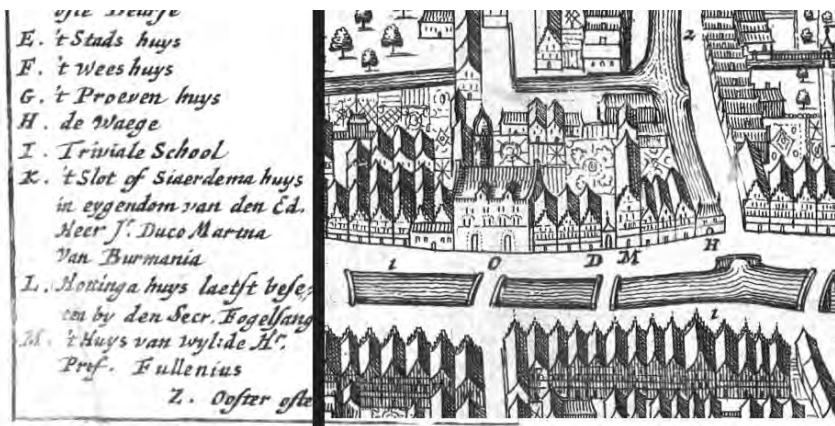 ofte Beurse
E. 't Stads huys
F. 't Wees huys
G. 't Proeven huys
H. de Waege
I. Triviale School
K. 't Slot of Siaerdema huys
in eygendom van den Ed.
Heer Jr. Duco Martna
Van Burmania
L. Hottinga huys laetst bese,
ten by den Secr. Fogelsang
M. 't Huys van wyl: de Hr.
Prof. Fullenius
Z. Ooster ofte
2
1 O D M H
1